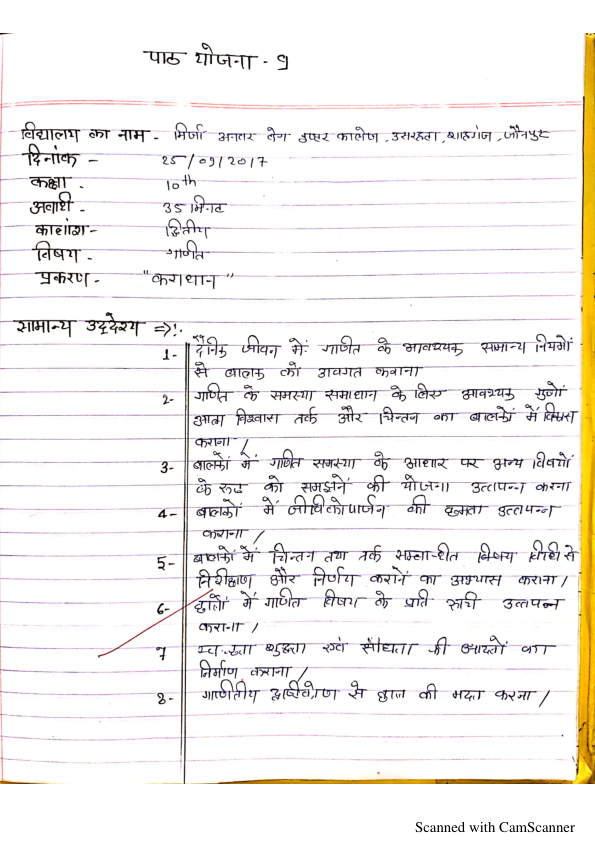 पाठ योजना - 9
विद्यालय का नाम - मिर्जा अनवर बेग इण्टर कालेज, उसरहटा, शाहगंज, जौनपुर
दिनांक - 25/09/2017
कक्षा - 10th
अवधि - 35 मिनट
कालांश - द्वितीय
विषय - गणित
प्रकरण - "कराधान"
सामान्य उद्देश्य =>:-
1- दैनिक जीवन में गणित के आवश्यक सामान्य नियमों
से बालक को अवगत कराना
2- गणित के समस्या समाधान के लिए आवश्यक गुणों
आत्म विश्वास तर्क और चिन्तन का बालकों में विकास
कराना /
3- बालकों में गणित समस्या के आधार पर अन्य विषयों
के को समझनें की योजना उत्पन्न करना
4- बालकों में जीविकोपार्जन की क्षमता उत्पन्न
कराना /
5- बालकों में चिन्तन तथा तर्क सम्बन्धीत विषय विधी से
निरीक्षण और निर्णय करानें का अभ्यास कराना /
6- छात्रों में गणित विषय के प्रति रूची उत्पन्न
कराना /
7 स्वच्छता शुद्धता एवं की आदतों का
निर्माण कराना /
8- गणितीय दृष्टिकोण से छात्र की मदद करना /
Scanned with CamScanner